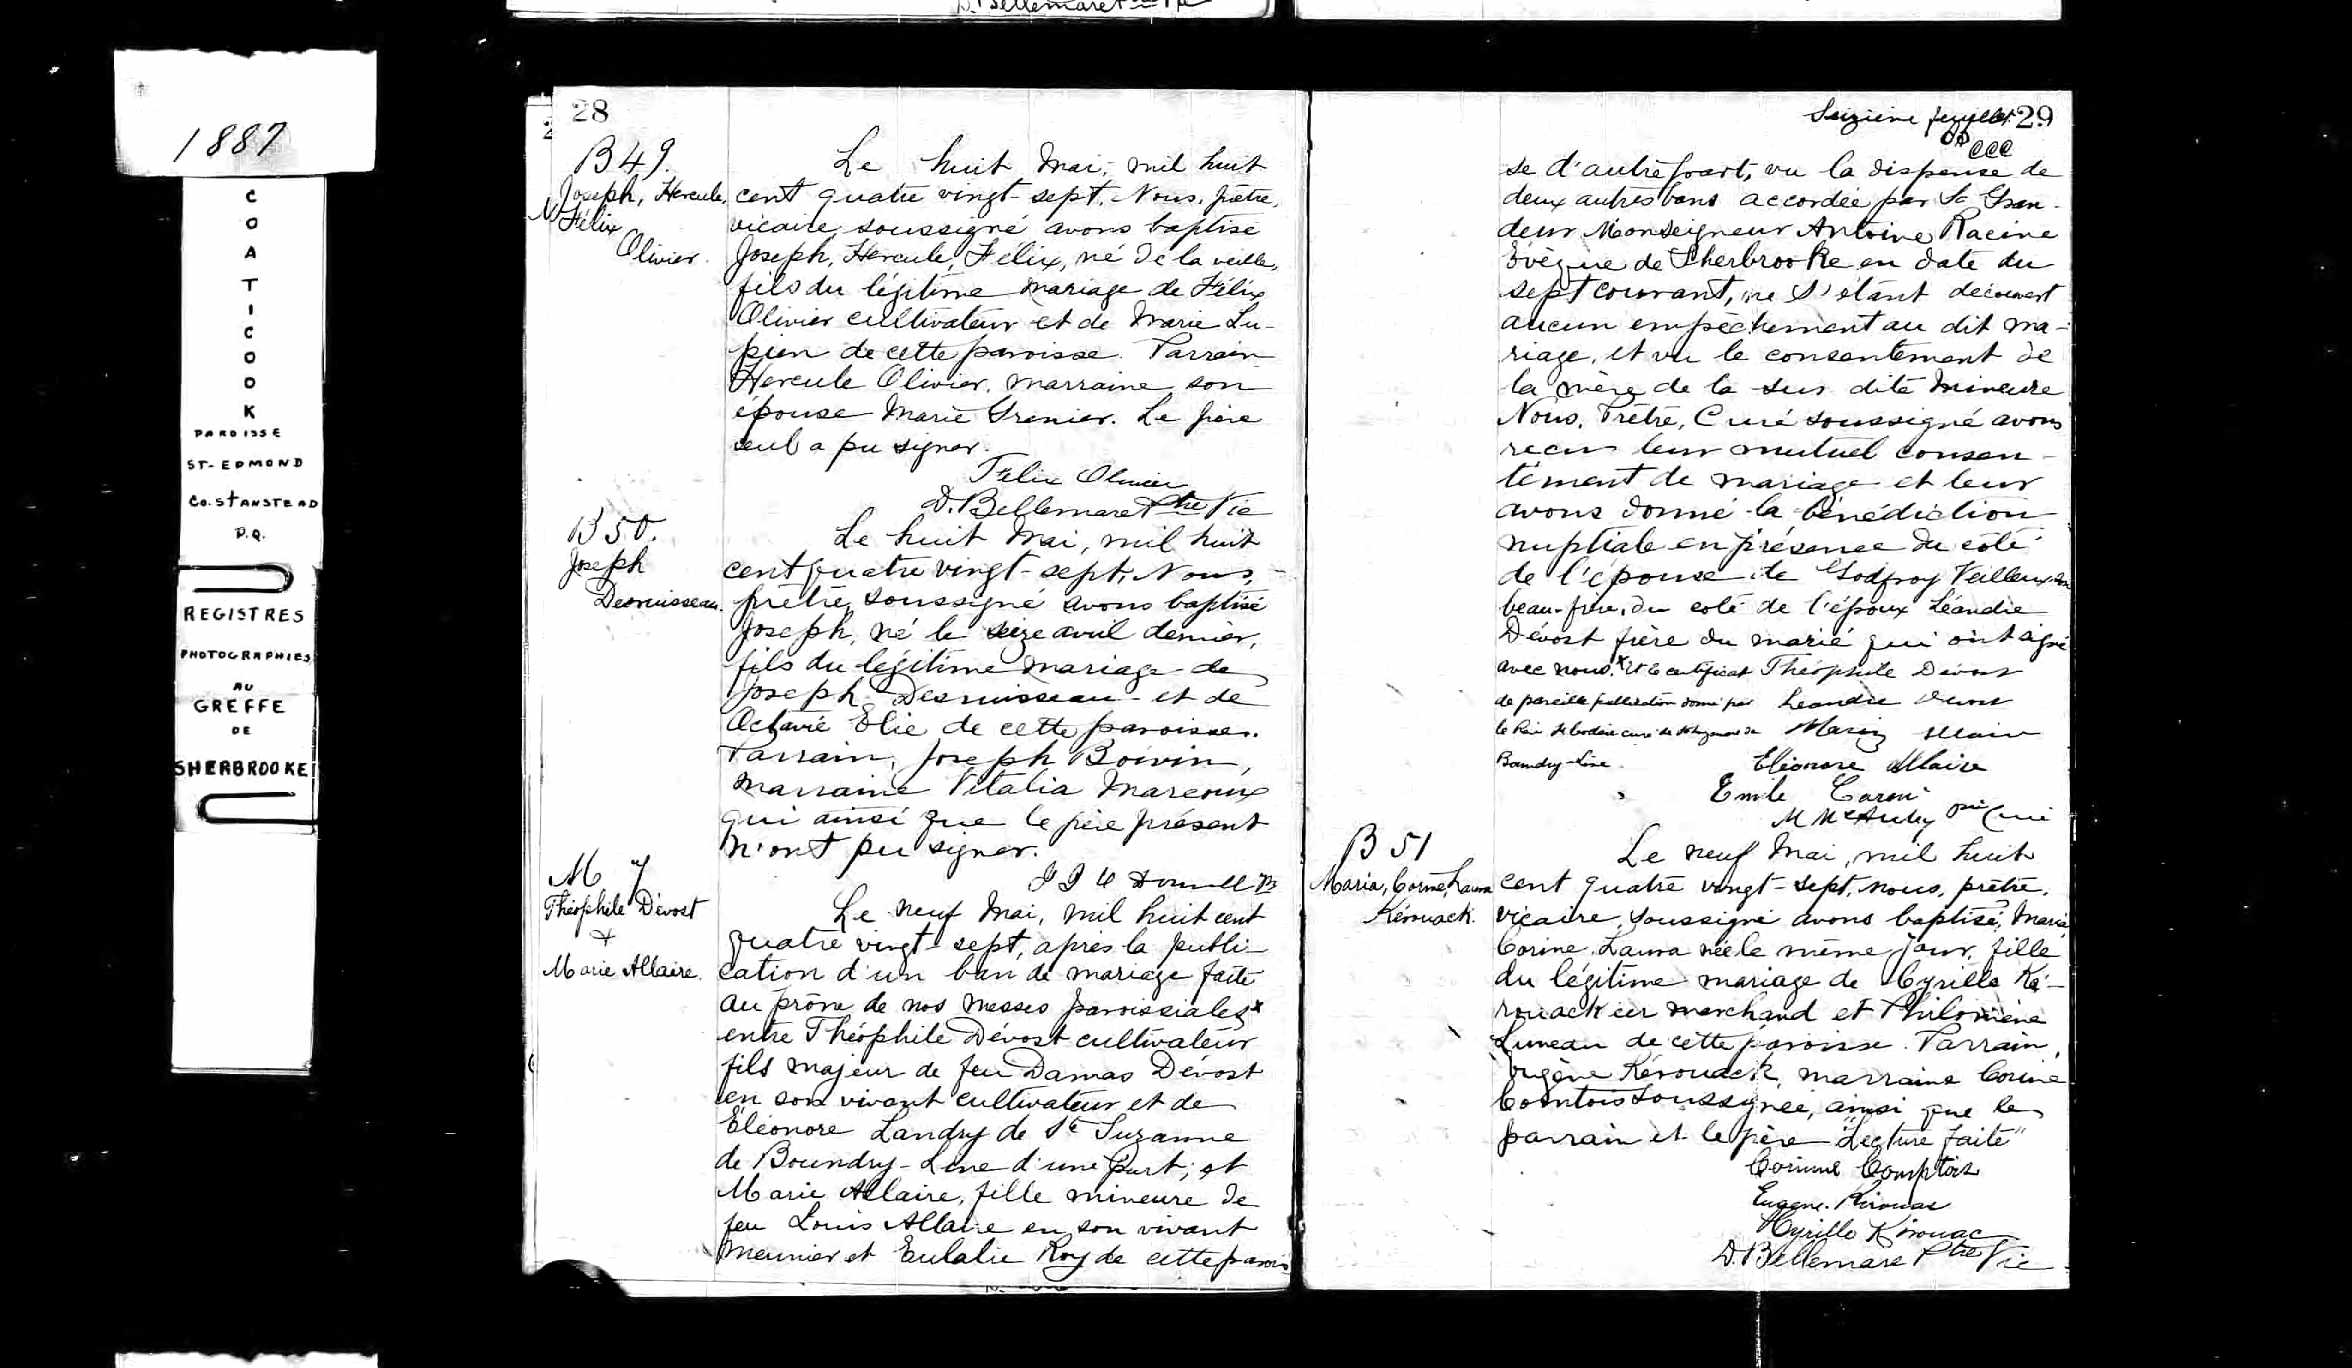 D. Bellemare Ptre
1887
C
O
A
T
I
C
O
O
K
PAROISSE
ST-EDMOND
CO. STANSTEAD
P.Q.
REGISTRES
PHOTOGRAPHIES
AU
GREFFE
DE
SHERBROOKE
28
B 49.
Joseph, Hercule,
Félix
Olivier.
Le huit Mai, mil huit
cent quatre vingt-sept, Nous, prêtre,
vicaire, soussigné avons baptisé
Joseph, Hercule, Félix, né de la veille,
fils du légitime mariage de Félix
Olivier cultivateur et de Marie Lu-
pien de cette paroisse. Parrain
Hercule Olivier, marraine son
épouse Marie Grenier. Le père
seul a pu signer.
Félix Olivier
D. Bellemare Ptre Vic
B 50.
Joseph
Desruisseau.
Le huit Mai, mil huit
cent quatre vingt-sept, Nous,
prêtre, soussigné avons baptisé
Joseph, né le seize avril dernier,
fils du légitime mariage de
Joseph Desruisseau et de
Octavie Elie de cette paroisse.
Parrain, Joseph Boivin,
marraine Vitalia Marcoux
qui ainsi que le père présent
n'ont pu signer.
M 7
Théophile Dévost
+
Marie Allaire.
Le neuf Mai, mil huit cent
quatre vingt-sept, après la publi-
cation d'un ban de mariage faite
au prône de nos messes paroissiales x
entre Théophile Dévost cultivateur
fils majeur de feu Damas Dévost
en son vivant cultivateur et de
Eléonore Landry de Ste Suzanne
de Boundry-Line d'une part; et
Marie Allaire, fille mineure de
feu Louis Allaire en son vivant
Meunier et Eulalie Roy de cette parois
Seizième feuillet 29
CCC
se d'autre part, vu la dispense de
deux autres bans accordée par Sa Gran-
deur Monseigneur Antoine Racine
Evêque de Sherbrooke en date du
sept courant, ne s'étant découvert
aucun empêchement au dit ma-
riage, et vu le consentement de
la mère de la sus dite mineure
Nous, Prêtre, Curé soussigné avons
reçu leur mutuel consen-
tement de mariage et leur
avons donné la bénédiction
nuptiale en présence du côté
de l'épouse de Godfroy Veilleux son
beau-frère, du coté de l'époux Léandre
Dévost frère du marié qui ont signé
avec nous. x et le certificat Théophile Dévost
de pareille publication donné par Leandre Devost
Boundry-Line.
Eléonore Allaire
Emile Caron
M McAuley ptre Curé
B 51
Maria, Corine, Laura
Kérouack.
Le neuf Mai, mil huit
cent quatre vingt-sept, nous, prêtre,
vicaire, soussigné avons baptisé, Maria,
Corine, Laura née le même jour, fille
du légitime mariage de Cyrille Ké-
rouack marchand et Philomène
Luneau de cette paroisse. Parrain,
Eugène Kérouack, marraine Corine
Comtois soussignée, ainsi que le
parrain et le père "Lecture faite"
Corinne Comptois
Eugene. Kirouac
Cyrille Kirouac
D. Bellemare Ptre Vic